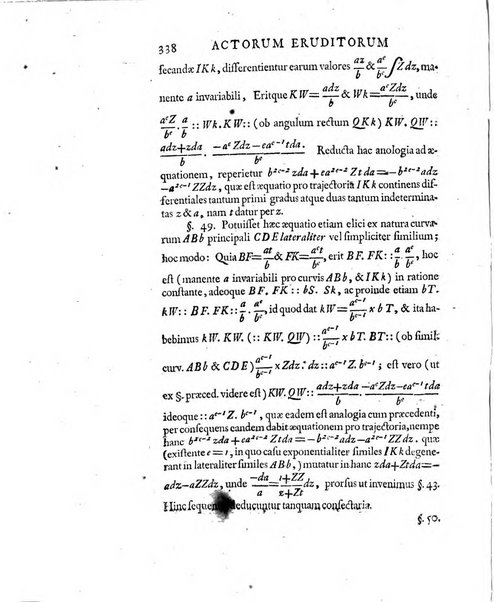 338 ACTORUM ERUDITORUM
secandæ IKk, differentientur earum valores az/b & a^e/b^e ∫Zdz, ma-
nente a invariabili, Eritque KW = adz/b & Wk = a^e Zdz/b^e, unde
a^e Z/b^e . a/b :: Wk. KW :: (ob angulum rectum QKk) KW. QW ::
adz+zda/b . −a^e Zdz−ea^{e−1}tda/b^e Reducta hac anologia ad æ-
quationem, reperietur b^{2e−2} zda + ea^{2e−2} Ztda = −b^{2e−2} adz
−a^{2e−1} ZZdz, quæ est æquatio pro trajectoria IKk continens dif-
ferentiales tantum primi gradus atque duas tantum indetermina-
tas z & a, nam t datur per z.
§. 49. Potuisset hæc æquatio etiam elici ex natura curva-
rum ABb principali CDE lateraliter vel simpliciter similium;
hoc modo: Quia BF = at/b & FK = a^e t/b^e, erit BF. FK :: a/b . a^e/b^e, hoc
est (manente a invariabili pro curvis ABb, & IKk) in ratione
constante, adeoque BF. FK :: bS. Sk, ac proinde etiam bT.
kW :: BF. FK :: a/b . a^e/b^e, id quod dat kW = a^{e−1}/b^{e−1} × bT, & ita ha-
bebimus kW. KW. (:: KW. QW) :: a^{e−1}/b^{e−1} × bT. BT :: (ob simil.
curv. ABb & CDE) a^{e−1}/b^{e−1} × Zdz. dz :: a^{e−1} Z. b^{e−1}; est vero (ut
ex §. præced. videre est) KW. QW :: adz+zda/b . −a^e Zdz−ea^{e−1}tda/b^e
ideoque :: a^{e−1} Z. b^{e−1}, quæ eadem est analogia cum præcedenti,
per consequens eandem dabit æquationem pro trajectoria, nempe
hanc b^{2e−2} zda + ea^{2e−2} Ztda = −b^{2e−2} adz−a^{2e−1} ZZdz. quæ
(existente e = 1, in quo casu exponentialiter similes IKk degene-
rant in lateraliter similes ABb,) mutatur in hanc zda + Ztda = −
adz−aZZdz, unde −da/a = 1+ZZ/z+Zt dz, prorsus ut invenimus §. 43.
Hinc sequentia deducuntur tanquam consectaria.
§. 50.